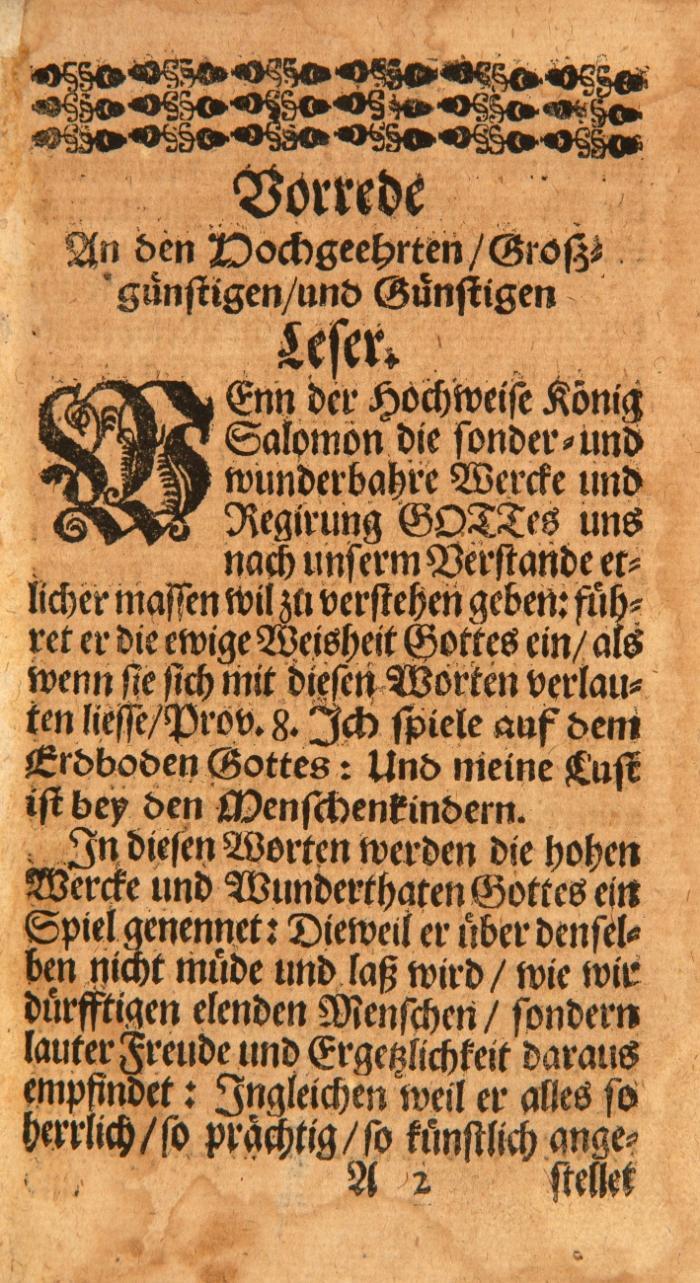 Vorrede
An den Hochgeehrten/Groß-
günstigen/und Günstigen
Leser.
WEnn der Hochweise König
Salomon die sonder-und
wunderbahre Wercke und
Regirung GOTTes uns
nach unserm Verstande et-
licher massen wil zu verstehen geben: füh-
ret er die ewige Weisheit Gottes ein/ als
wenn sie sich mit diesen Worten verlau-
ten liesse/Prov. 8. Ich spiele auf dem
Erdboden Gottes: Und meine Lust
ist bey den Menschenkindern.
In diesen Worten werden die hohen
Wercke und Wunderthaten Gottes ein
Spiel genennet: Dieweil er über densel-
ben nicht müde und laß wird/ wie wir
dürfftigen elenden Menschen/ sondern
lauter Freude und Ergetzlichkeit daraus
empfindet: Ingleichen weil er alles so
herrlich/so prächtig/so künstlich ange-
A 2 stellet